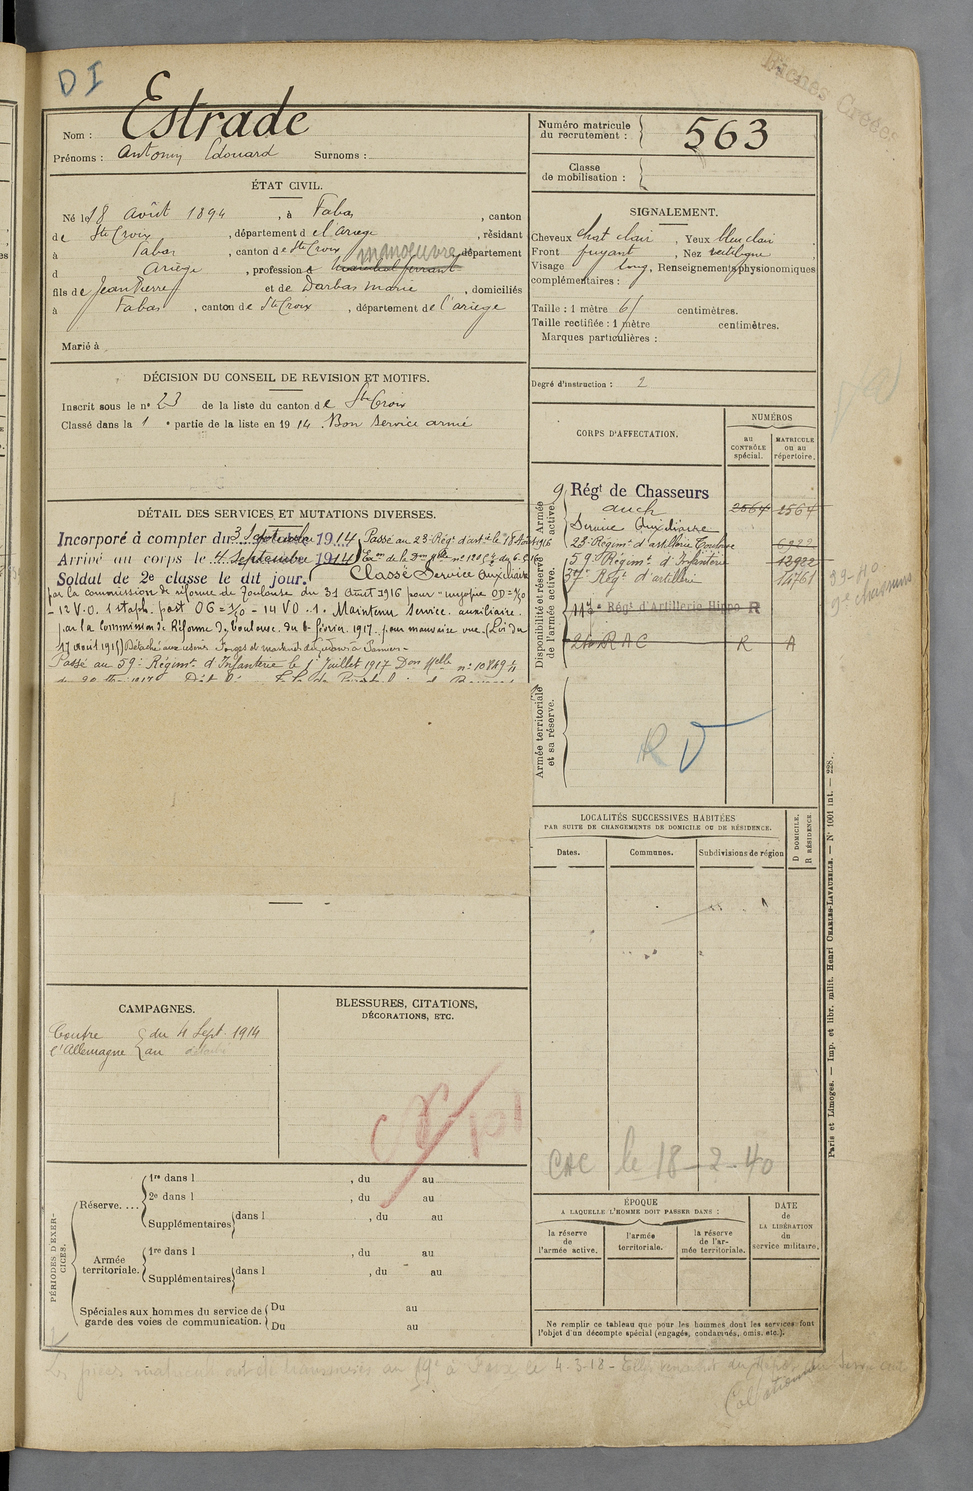 DI
Fiches Créées
Nom : Estrade
Prénoms : Antonin Edouard Surnoms :
Numéro matricule du recrutement : 563
Classe de mobilisation :
ÉTAT CIVIL.
Né le 18 août 1894, à Fabas, canton
de Ste Croix, département de l'Ariège, résidant
à Fabas, canton de Ste Croix département
d Ariège, profession d maréchal ferrant manœuvre
fils de Jean Pierre et de Darbas Marie, domiciliés
à Fabas, canton de Ste Croix, département de l'ariège
Marié à
SIGNALEMENT.
Cheveux chat clair, Yeux bleu clair
Front fuyant, Nez rectiligne
Visage long, Renseignements physionomiques
complémentaires :
Taille : 1 mètre 61 centimètres.
Taille rectifiée : 1 mètre centimètres.
Marques particulières :
Degré d'instruction : 2
DÉCISION DU CONSEIL DE REVISION ET MOTIFS.
Inscrit sous le nº 23 de la liste du canton de Ste Croix
Classé dans la 1e partie de la liste en 1914. Bon service armé
CORPS D'AFFECTATION.
NUMÉROS
au CONTRÔLE spécial.
MATRICULE ou au répertoire.
Armée active.
9 Régt de Chasseurs
auch 2564 2564
Service Auxiliaire
Disponibilité et réserve de l'armée active.
23 Régimt d'artillerie Toulouse
59e Régimt d'Infanterie 13922
Régt d'artillerie 14761
117e Régt d'Artillerie Hippo R
24 R A C R A
39-40
9e chasseurs
Armée territoriale et sa réserve.
R V
DÉTAIL DES SERVICES ET MUTATIONS DIVERSES.
Incorporé à compter du 3 Septembre 1914 Passé au 23e Régt d'artie le 18 Août 1916
Arrivé au corps le 4 Septembre 1914
Soldat de 2e classe le dit jour. Classé Service Auxiliaire
par la commission de réforme de Toulouse du 31 Août 1916 pour - myopie
- 12 V.O. 1 staph. post OG = - 14 VO . 1. Maintenu Service auxiliaire.
par la commission de Réforme de Toulouse du 6 février 1917. pour mauvaise vue (Loi du
17 août 1915) Détaché aux usines Forges et
Passé au 59e Régimt d'Infanterie le 1er Juillet 1917 Don Melle nº 10849
LOCALITÉS SUCCESSIVES HABITÉES
PAR SUITE DE CHANGEMENTS DE DOMICILE OU DE RÉSIDENCE.
Dates.
Communes.
Subdivisions de région
D DOMICILE.
R RÉSIDENCE.
CAC le 18-2-40
CAMPAGNES.
Contre l'Allemagne du 4 Sept. 1914
au
BLESSURES, CITATIONS,
DÉCORATIONS, ETC.
PÉRIODES D'EXERCICES.
Réserve....
1re dans l , du au
2e dans l , du au
Supplémentaires dans l , du au
Armée territoriale.
1re dans l , du au
Supplémentaires dans l , du au
Spéciales aux hommes du service de garde des voies de communication.
Du au
Du au
ÉPOQUE
A LAQUELLE L'HOMME DOIT PASSER DANS :
la réserve de l'armée active.
l'armée territoriale.
la réserve de l'armée territoriale.
DATE de LA LIBÉRATION du service militaire.
Ne remplir ce tableau que pour les hommes dont les services font
l'objet d'un décompte spécial (engagés, condamnés, omis, etc.).
Paris et Limoges. — Imp. et libr. milit. Henri CHARLES-LAVAUZELLE. — Nº 1001 int. — 228.
Les pièces matricules ont été transmises au 59e à Foix le 4-3-18 -
Collationné